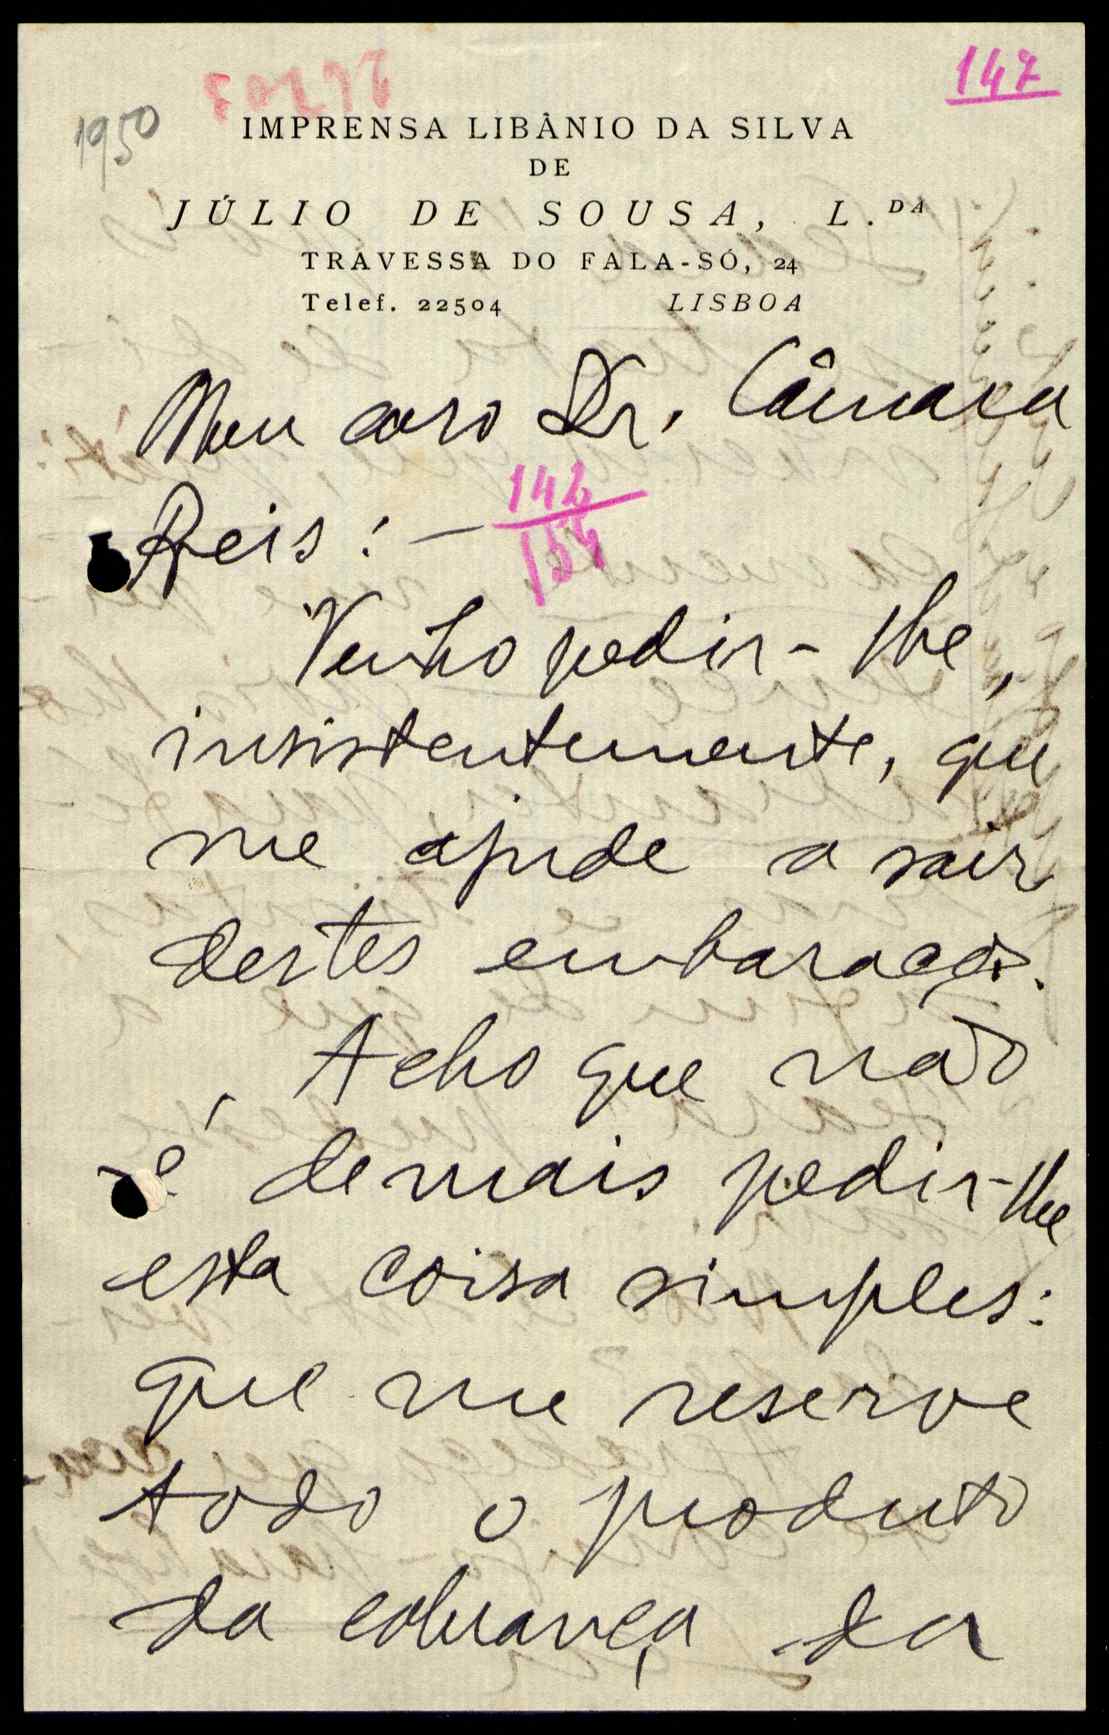 147
1950
IMPRENSA LIBÂNIO DA SILVA
DE
JÚLIO DE SOUSA, L.DA
TRAVESSA DO FALA-SÓ, 24
Telef. 22504 LISBOA
Meu caro Dr. Câmara
Reis: —
Venho pedir-lhe,
insistentemente, que
me ajude a sair
destes embaraços.
Acho que não
é demais pedir-lhe
esta coisa simples:
que me reserve
todo o produto
da cobrança da